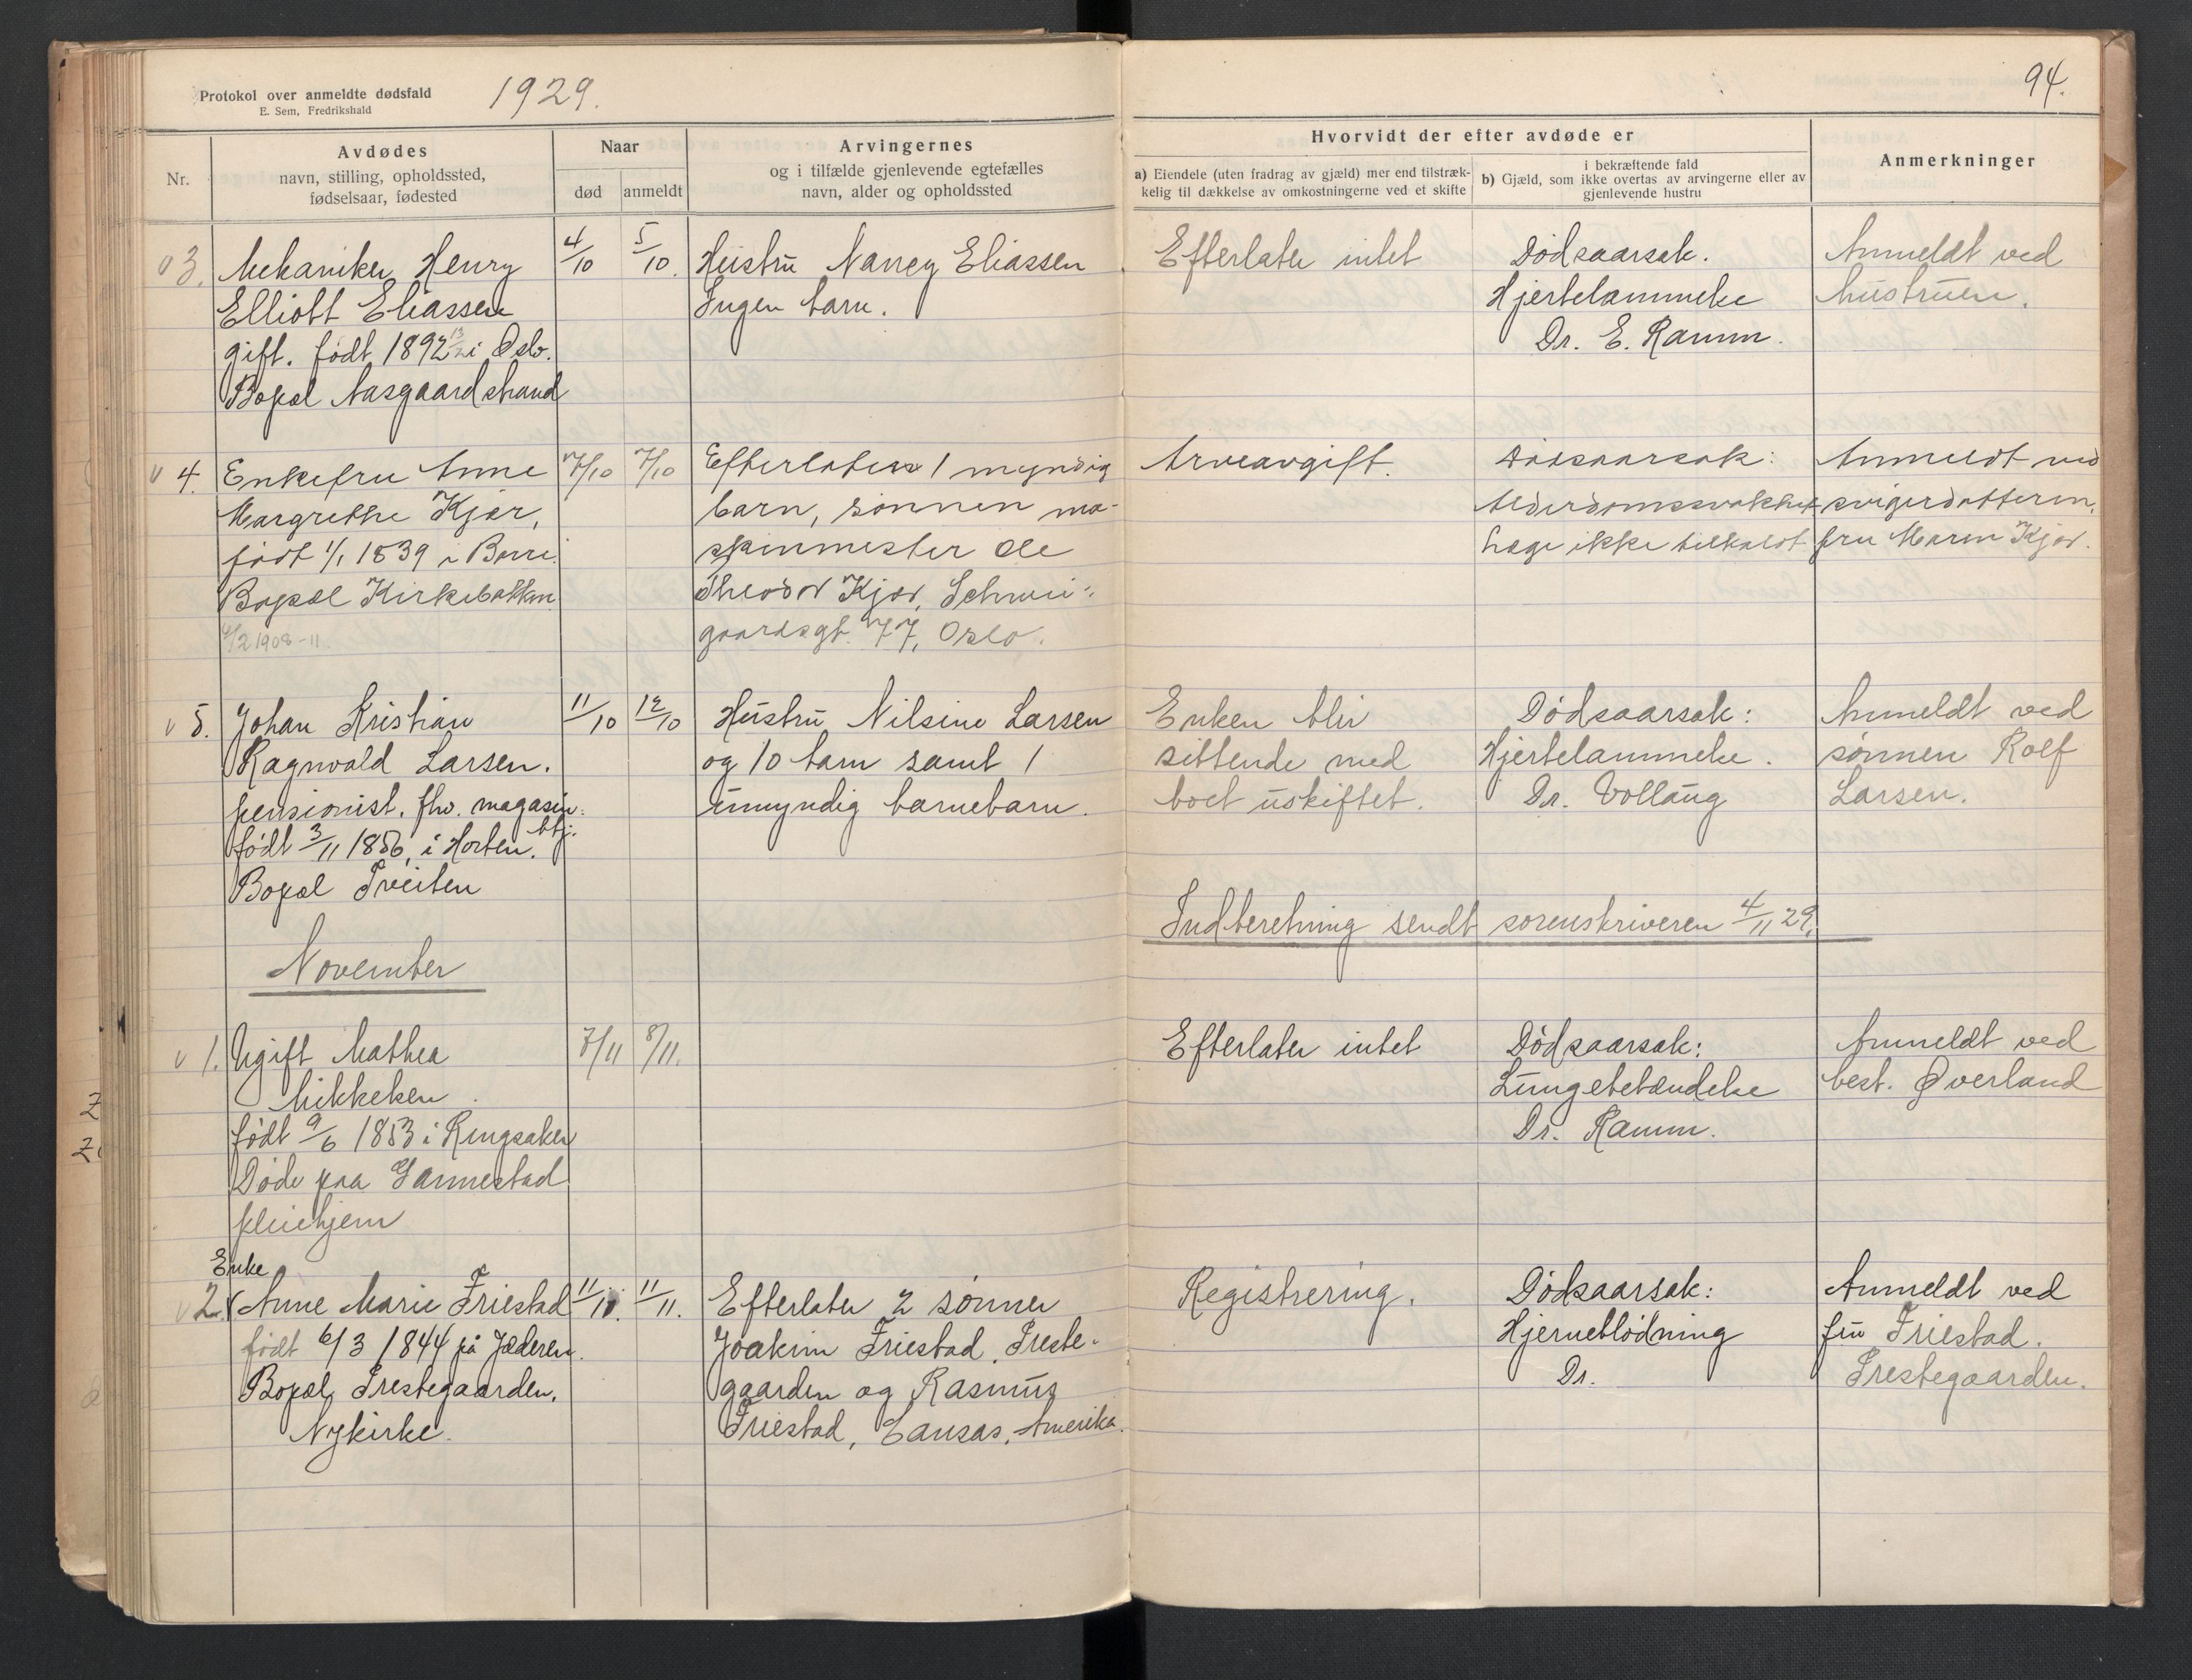 Protokol over anmeldte dødsfald
E. Sem, Fredrikshald
1929.
94.
Nr.
Avdødes
navn, stilling, opholdssted,
fødselsaar, fødested
Naar
død
anmeldt
Arvingernes
og i tilfælde gjenlevende egtefælles
navn, alder og opholdssted
Hvorvidt der efter avdøde er
a) Eiendele (uten fradrag av gjæld) mer end tilstræk-
kelig til dækkelse av omkostningerne ved et skifte
i bekræftende fald
b) Gjæld, som ikke overtas av arvingerne eller av
gjenlevende hustru
Anmerkninger
v 3.
Mekaniker Henry
Elliott Eliassen
gift. født 1892 13/2 i Oslo.
Bopæl Aasgaardstrand
4/10
5/10.
Hustru Nancy Eliassen
Ingen barn.
Efterlater intet
Dødsaarsak.
Hjertelammelse
Dr. E. Ramm.
Anmeldt ved
hustruen.
v 4.
Enkefru Anne
Margrethe Kjær,
født 1/1 1839 i Borre.
Bopæl Kirkebakken
4/2 1908-11.
7/10
7/10
Efterlater 1 myndig
barn, sønnen ma-
skinmester Ole
Theodor Kjær, Schwei-
gaardsgt. 77, Oslo.
Arveavgift.
Dødsaarsak:
Alderdomssvakhet
Læge ikke tilkaldt
Anmeldt ved
svigerdatteren,
fru Maren Kjær.
v 5.
Johan Kristian
Ragnvald Larsen.
pensionist. fhv. magasin-
btj.
født 3/11 1856, i Horten.
Bopæl Tveiten
11/10
12/10
Hustru Nilsine Larsen
og 10 barn samt 1
umyndig barnebarn.
Enken blir
sittende med
boet uskiftet.
Dødsaarsak:
Hjertelammelse.
Dr. Vollaug
Anmeldt ved
sønnen Rolf
Larsen.
Indberetning sendt sorenskriveren 4/11 29.
November
v 1.
Ugift Mathea
Mikkelsen.
født 9/6 1853 i Ringsaker
Døde paa Gannestad
pleiehjem
7/11
8/11.
Efterlater intet
Dødsaarsak:
Lungebetændelse
Dr. Ramm.
Anmeldt ved
best. Øverland
v 2.
Enke
Anne Marie Friestad
født 6/3 1844 på Jæderen.
Bopæl, Prestegaarden,
Nykirke.
11/11.
11/11.
Efterlater 2 sønner
Joakim Friestad, Preste-
gaarden og Rasmus
Friestad, Cansas, Amerika.
Registrering.
Dødsaarsak:
Hjerneblødning
Dr.
Anmeldt ved
fru Friestad.
Prestegaarden.